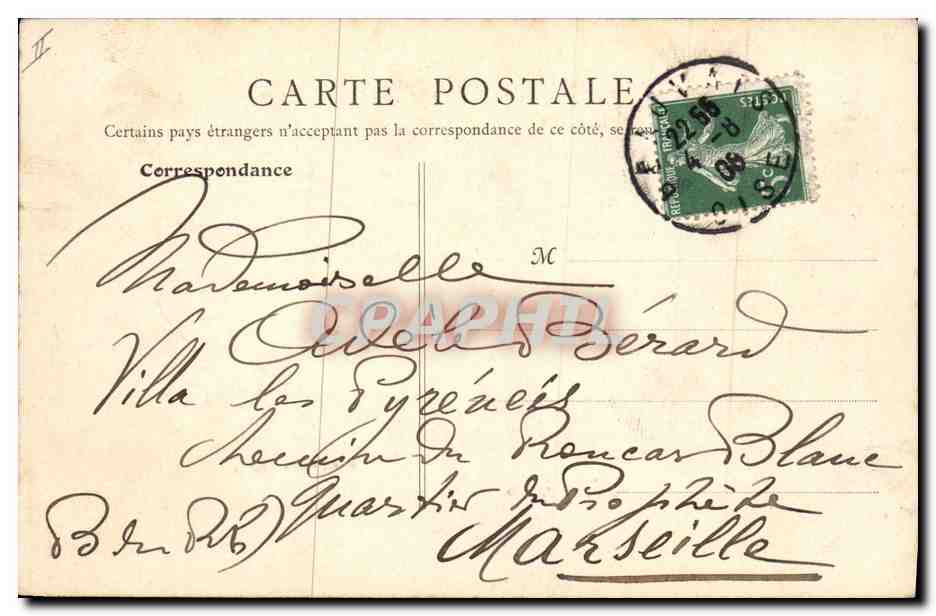 II
CARTE POSTALE
Certains pays étrangers n'acceptent pas la correspondance de ce côté, se
Correspondance
RÉPUBLIQUE FRANÇAISE
POSTES
5 c
22 55
4 - 8
08
OISE
M
Mademoiselle
CPAPHIL
Adèle Bérard
Villa les Pyrénées
chemin du Roucas Blanc
quartier du Prophète
Marseille
B du Rh)